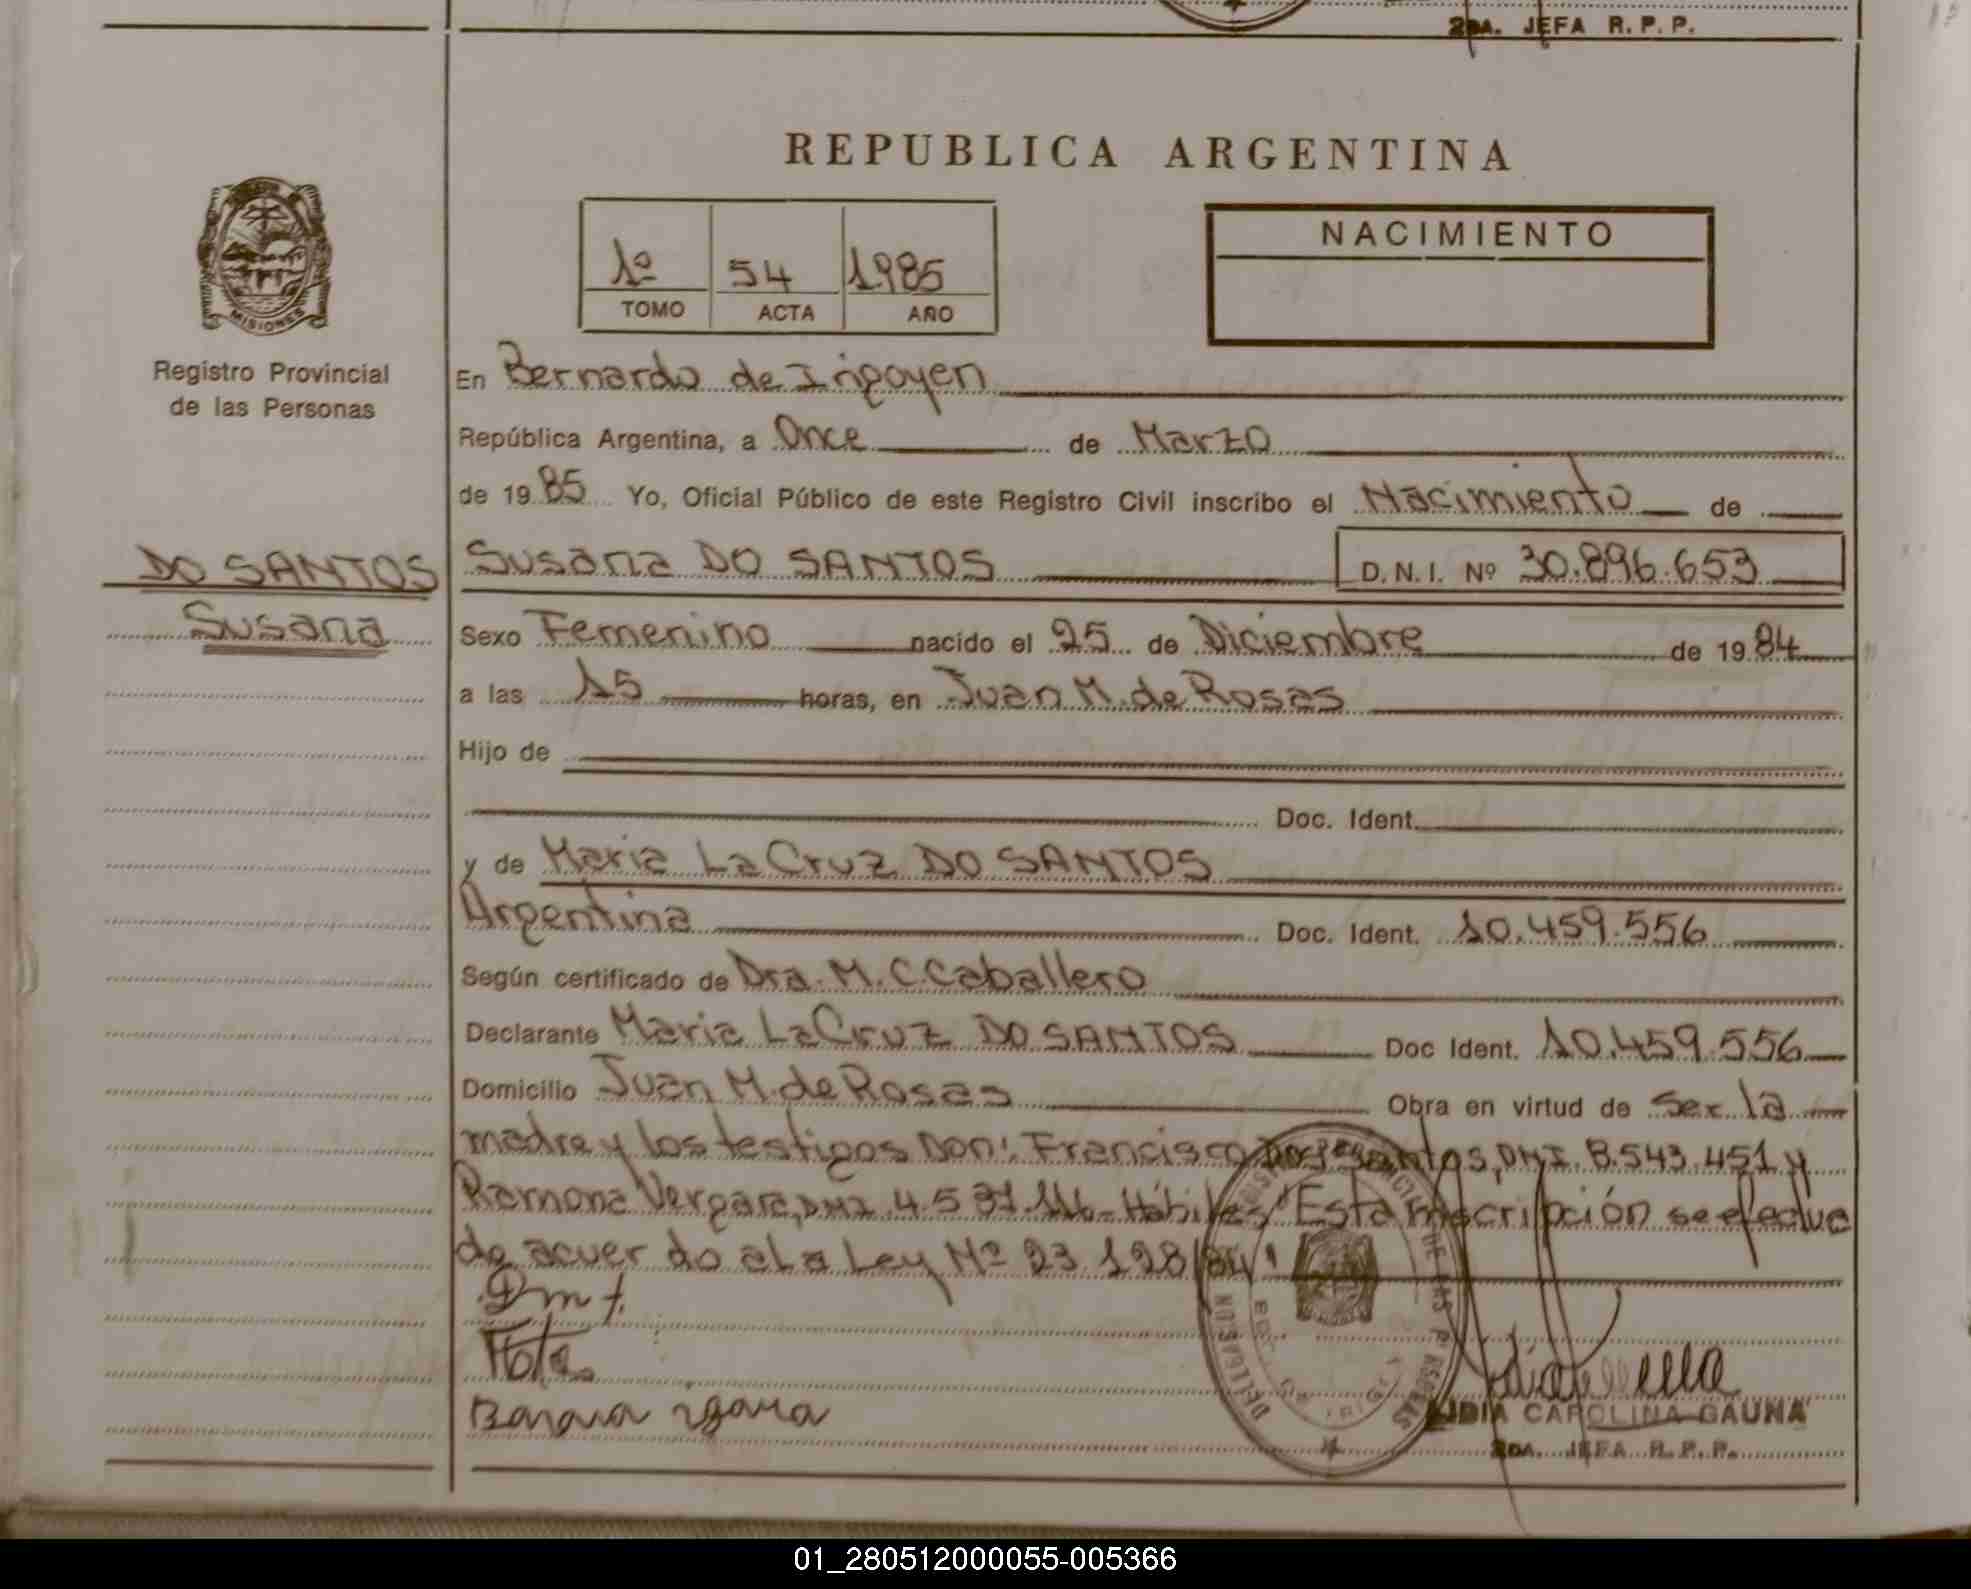 2DA. JEFA R. P. P.
REPUBLICA ARGENTINA
NACIMIENTO
1º 54 1985
TOMO ACTA AÑO
MISIONES
Registro Provincial
de las Personas
En Bernardo de Irigoyen
República Argentina, a Once de Marzo
de 19 85 Yo, Oficial Público de este Registro Civil inscribo el Nacimiento de
DO SANTOS
Susana
Susana DO SANTOS D.N.I. Nº 30.896.653
Sexo Femenino nacido el 25 de Diciembre de 19 84
a las 15 horas, en Juan M. de Rosas
Hijo de
Doc. Ident.
y de Maria La Cruz DO SANTOS
Argentina Doc. Ident. 10.459.556
Según certificado de Dra. M. C. Caballero
Declarante Maria La Cruz DO SANTOS Doc Ident. 10.459.556
Domicilio Juan M. de Rosas Obra en virtud de ser la
madre y los testigos Don: Francisco Santos, DNI. 8.543.451 y
Ramona Vergara, DNI. 4.5 Hábiles "Esta inscripción se efectua
de acuer do a la Ley Nº 23.128/84"
LIDIA CAROLINA GAUNA
2DA. JEFA R. P. P.
01_280512000055-005366